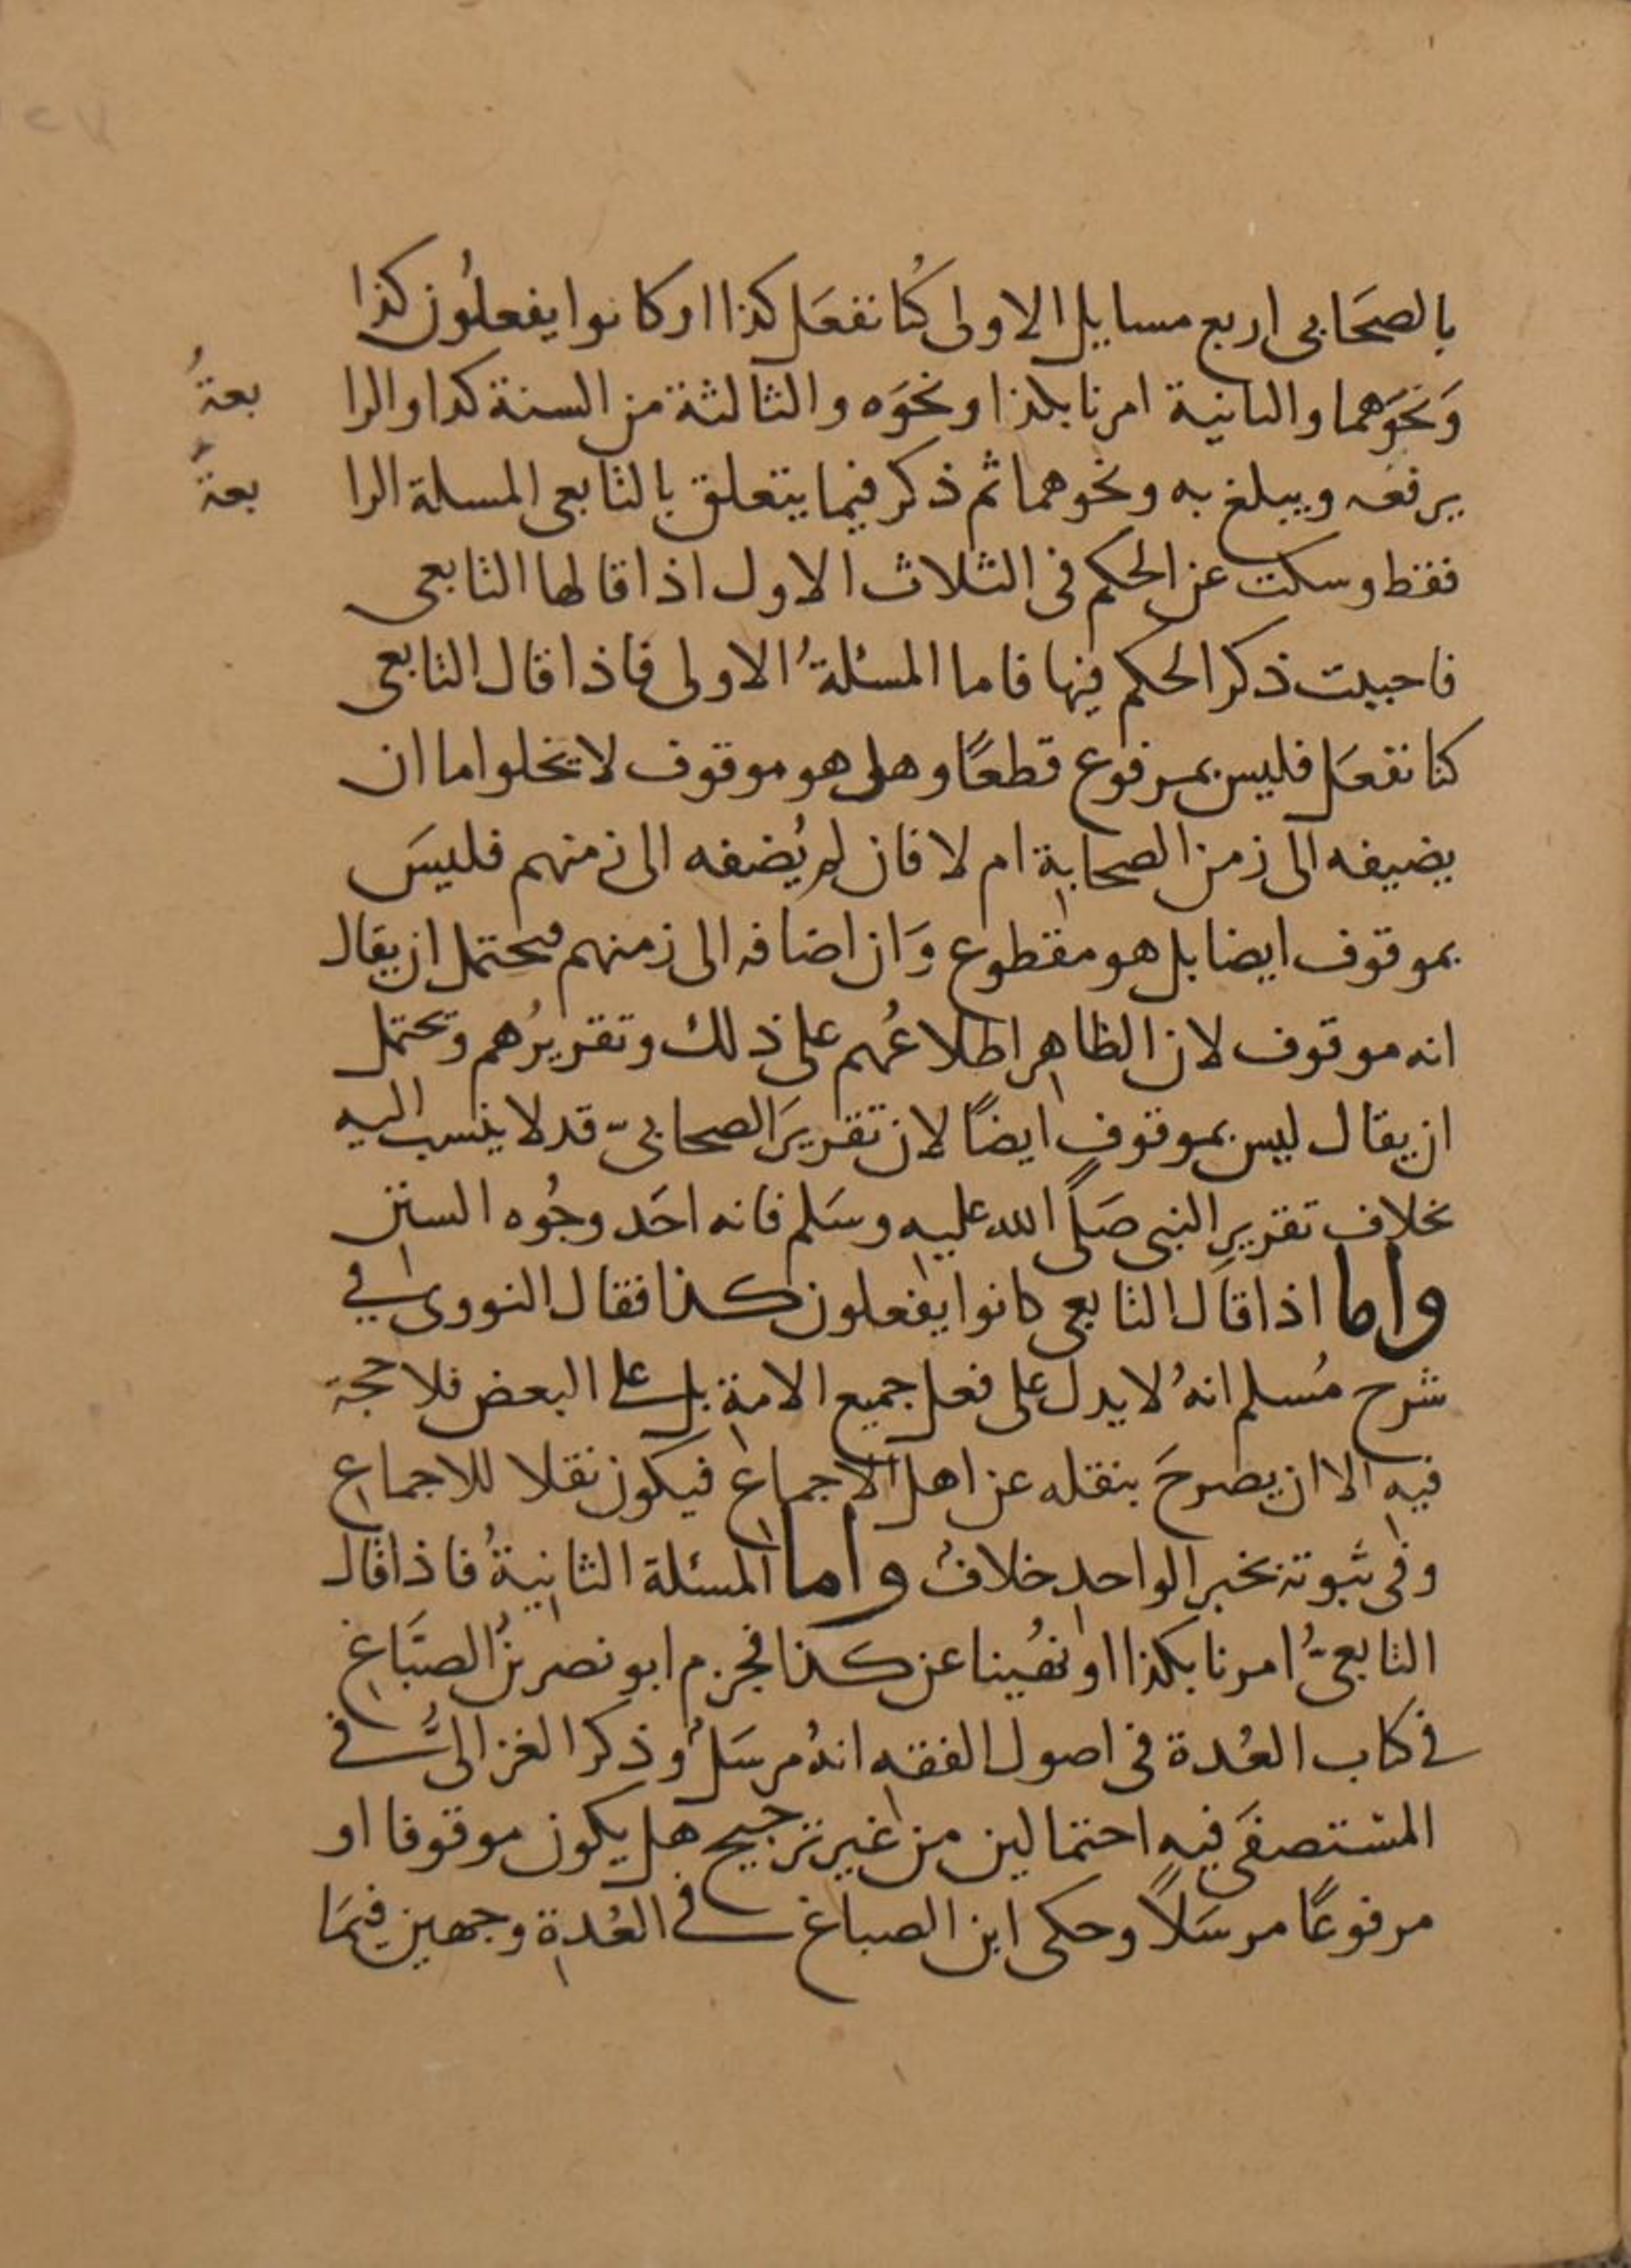 بالصحَابى اربع مسايل الاولى كُنا نفعَل كذا او كانوا يفعلُون كذا
وَنحوَهما والثانية امرنا بكذا ونحوَه والثالثة من السنة كذا والرابعةُ
يرفعه ويبلغ به ونحوهما ثم ذكر فيما يتعلق بالتابعى المسلة الرابعة
فقط وسكت عن الحكم فى الثلاث الاول اذا قالها التابعى
فاحببت ذكر الحكم فيها فاما المسئلةُ الاولى فاذا قال التابعى
كنا نفعَل فليس بمرفوع قطعًا وهل هو موقوف لا يخلوا اما ان
يضيفه الى زمن الصحابة ام لا فان لم يُضفه الى زمنهم فليسَ
بموقوف ايضا بل هو مقطوع وَان اضافه الى زمنهم فيحتمل ان يقال
انه موقوف لان الظاهر اطلاعُهم على ذلك وتقريرُهم ويحتمل
ان يقال ليس بموقوفٍ ايضًا لان تقريرَ الصحابىّ قد لا ينسب اليه
بخلاف تقريرِ النبى صَلَّى الله عليه وسَلم فانه احَد وجُوه السنن
واما اذا قال التابعى كانوا يفعلون كذا فقال النووى فى
شرح مُسلم انهُ لا يدل على فعل جميع الامة بل على البعض فلا حجة
فيه الا ان يصرحَ بنقله عن اهل الاجماع فيكون نقلا للاجماع
وفى ثبوته بخبر الواحدِ خلافٌ واما المسئلة الثانيةُ فاذا قال
التابعىُّ امرنا بكذا او نهُينا عن كذا فجزم ابو نصر بنُ الصبَّاغ
فى كتاب العُدة فى اصول الفقه انهُ مرسَلٌ وذكر الغزالىُّ فى
المستصفَى فيه احتمالين من غير ترجيح هل يكون موقوفا او
مرفوعًا مرسَلاً وحكى ابن الصباغ فى العُدة وجهين فيمَا